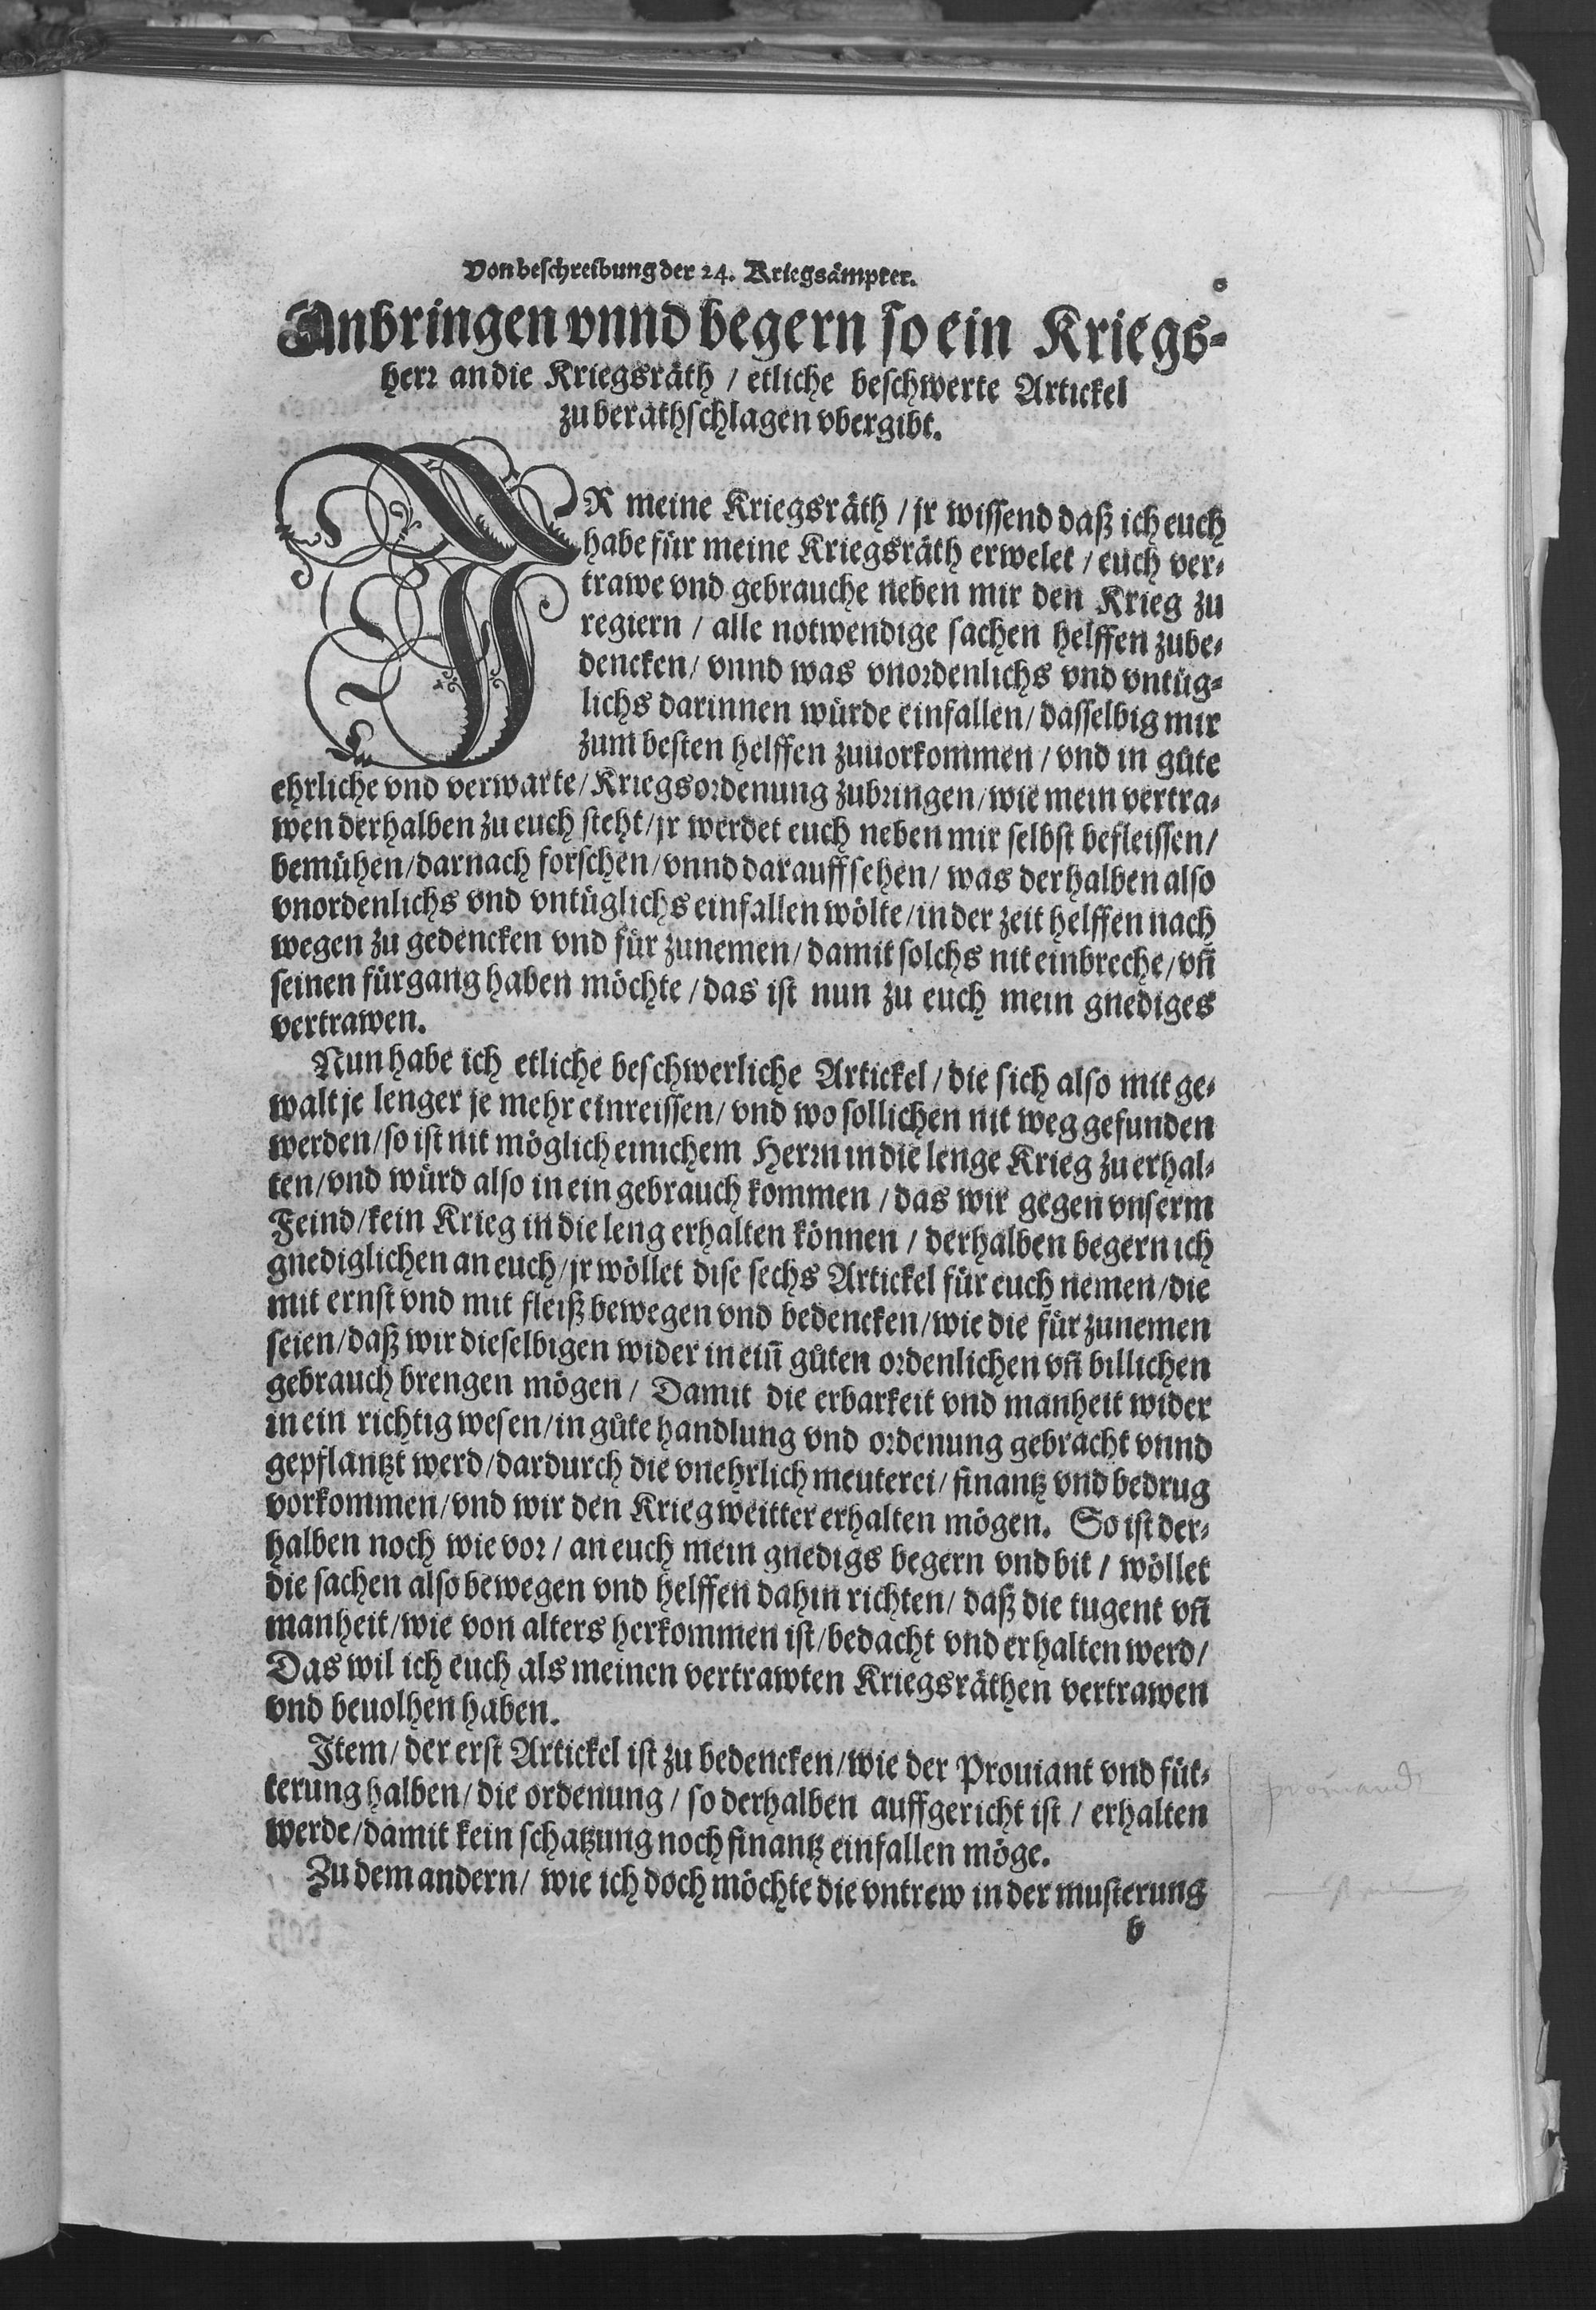 Von beschreibung der 24. Kriegsämpter.
Anbringen vnnd begern so ein Kriegs-
herr an die Kriegsräth / etliche beschwerte Artickel
zu beräthschlagen vbergibt.
JR meine Kriegsräth / jr wissend daß ich euch
habe für meine Kriegsräth erwelet / euch ver-
trawe vnd gebrauche neben mir den Krieg zu
regiern / alle notwendige sachen helffen zube-
dencken / vnnd was vnordenlichs vnd vntüg-
lichs darinnen würde einfallen / dasselbig mir
zum besten helffen zuuorkommen / vnd in gůte
ehrliche vnd verwarte / Kriegsordenung zubringen / wie mein vertra-
wen derhalben zu euch steht / jr werdet euch neben mir selbst befleissen /
bemühen / darnach forschen / vnnd darauff sehen / was derhalben also
vnordenlichs vnd vntüglichs einfallen wölte / in der zeit helffen nach
wegen zu gedencken vnd für zunemen / damit solchs nit einbreche / vñ
seinen fürgang haben möchte / das ist nun zu euch mein gnediges
vertrawen.
Nun habe ich etliche beschwerliche Artickel / die sich also mit ge-
walt je lenger je mehr einreissen / vnd wo sollichen nit weg gefunden
werden / so ist nit möglich einichem Herrn in die lenge Krieg zu erhal-
ten / vnd würd also in ein gebrauch kommen / das wir gegen vnserm
Feind / kein Krieg in die leng erhalten können / derhalben begern ich
gnediglichen an euch / jr wöllet dise sechs Artickel für euch nemen / die
mit ernst vnd mit fleiß bewegen vnd bedencken / wie die für zunemen
seien / daß wir dieselbigen wider in eiñ gůten ordenlichen vñ billichen
gebrauch brengen mögen / Damit die erbarkeit vnd manheit wider
in ein richtig wesen / in gůte handlung vnd ordenung gebracht vnnd
gepflantzt werd / dardurch die vnehrlich meuterei / finantz vnd bedrug
vorkommen / vnd wir den Krieg weitter erhalten mögen. So ist der-
halben noch wie vor / an euch mein gnedigs begern vnd bit / wöllet
die sachen also bewegen vnd helffen dahin richten / daß die tugent vñ
manheit / wie von alters herkommen ist / bedacht vnd erhalten werd /
Das wil ich euch als meinen vertrawten Kriegsräthen vertrawen
vnd beuolhen haben.
Item / der erst Artickel ist zu bedencken / wie der Prouiant vnd füt-
terung halben / die ordenung / so derhalben auffgericht ist / erhalten
werde / damit kein schatzung noch finantz einfallen möge.
Zu dem andern / wie ich doch möchte die vntrew in der musterung
b